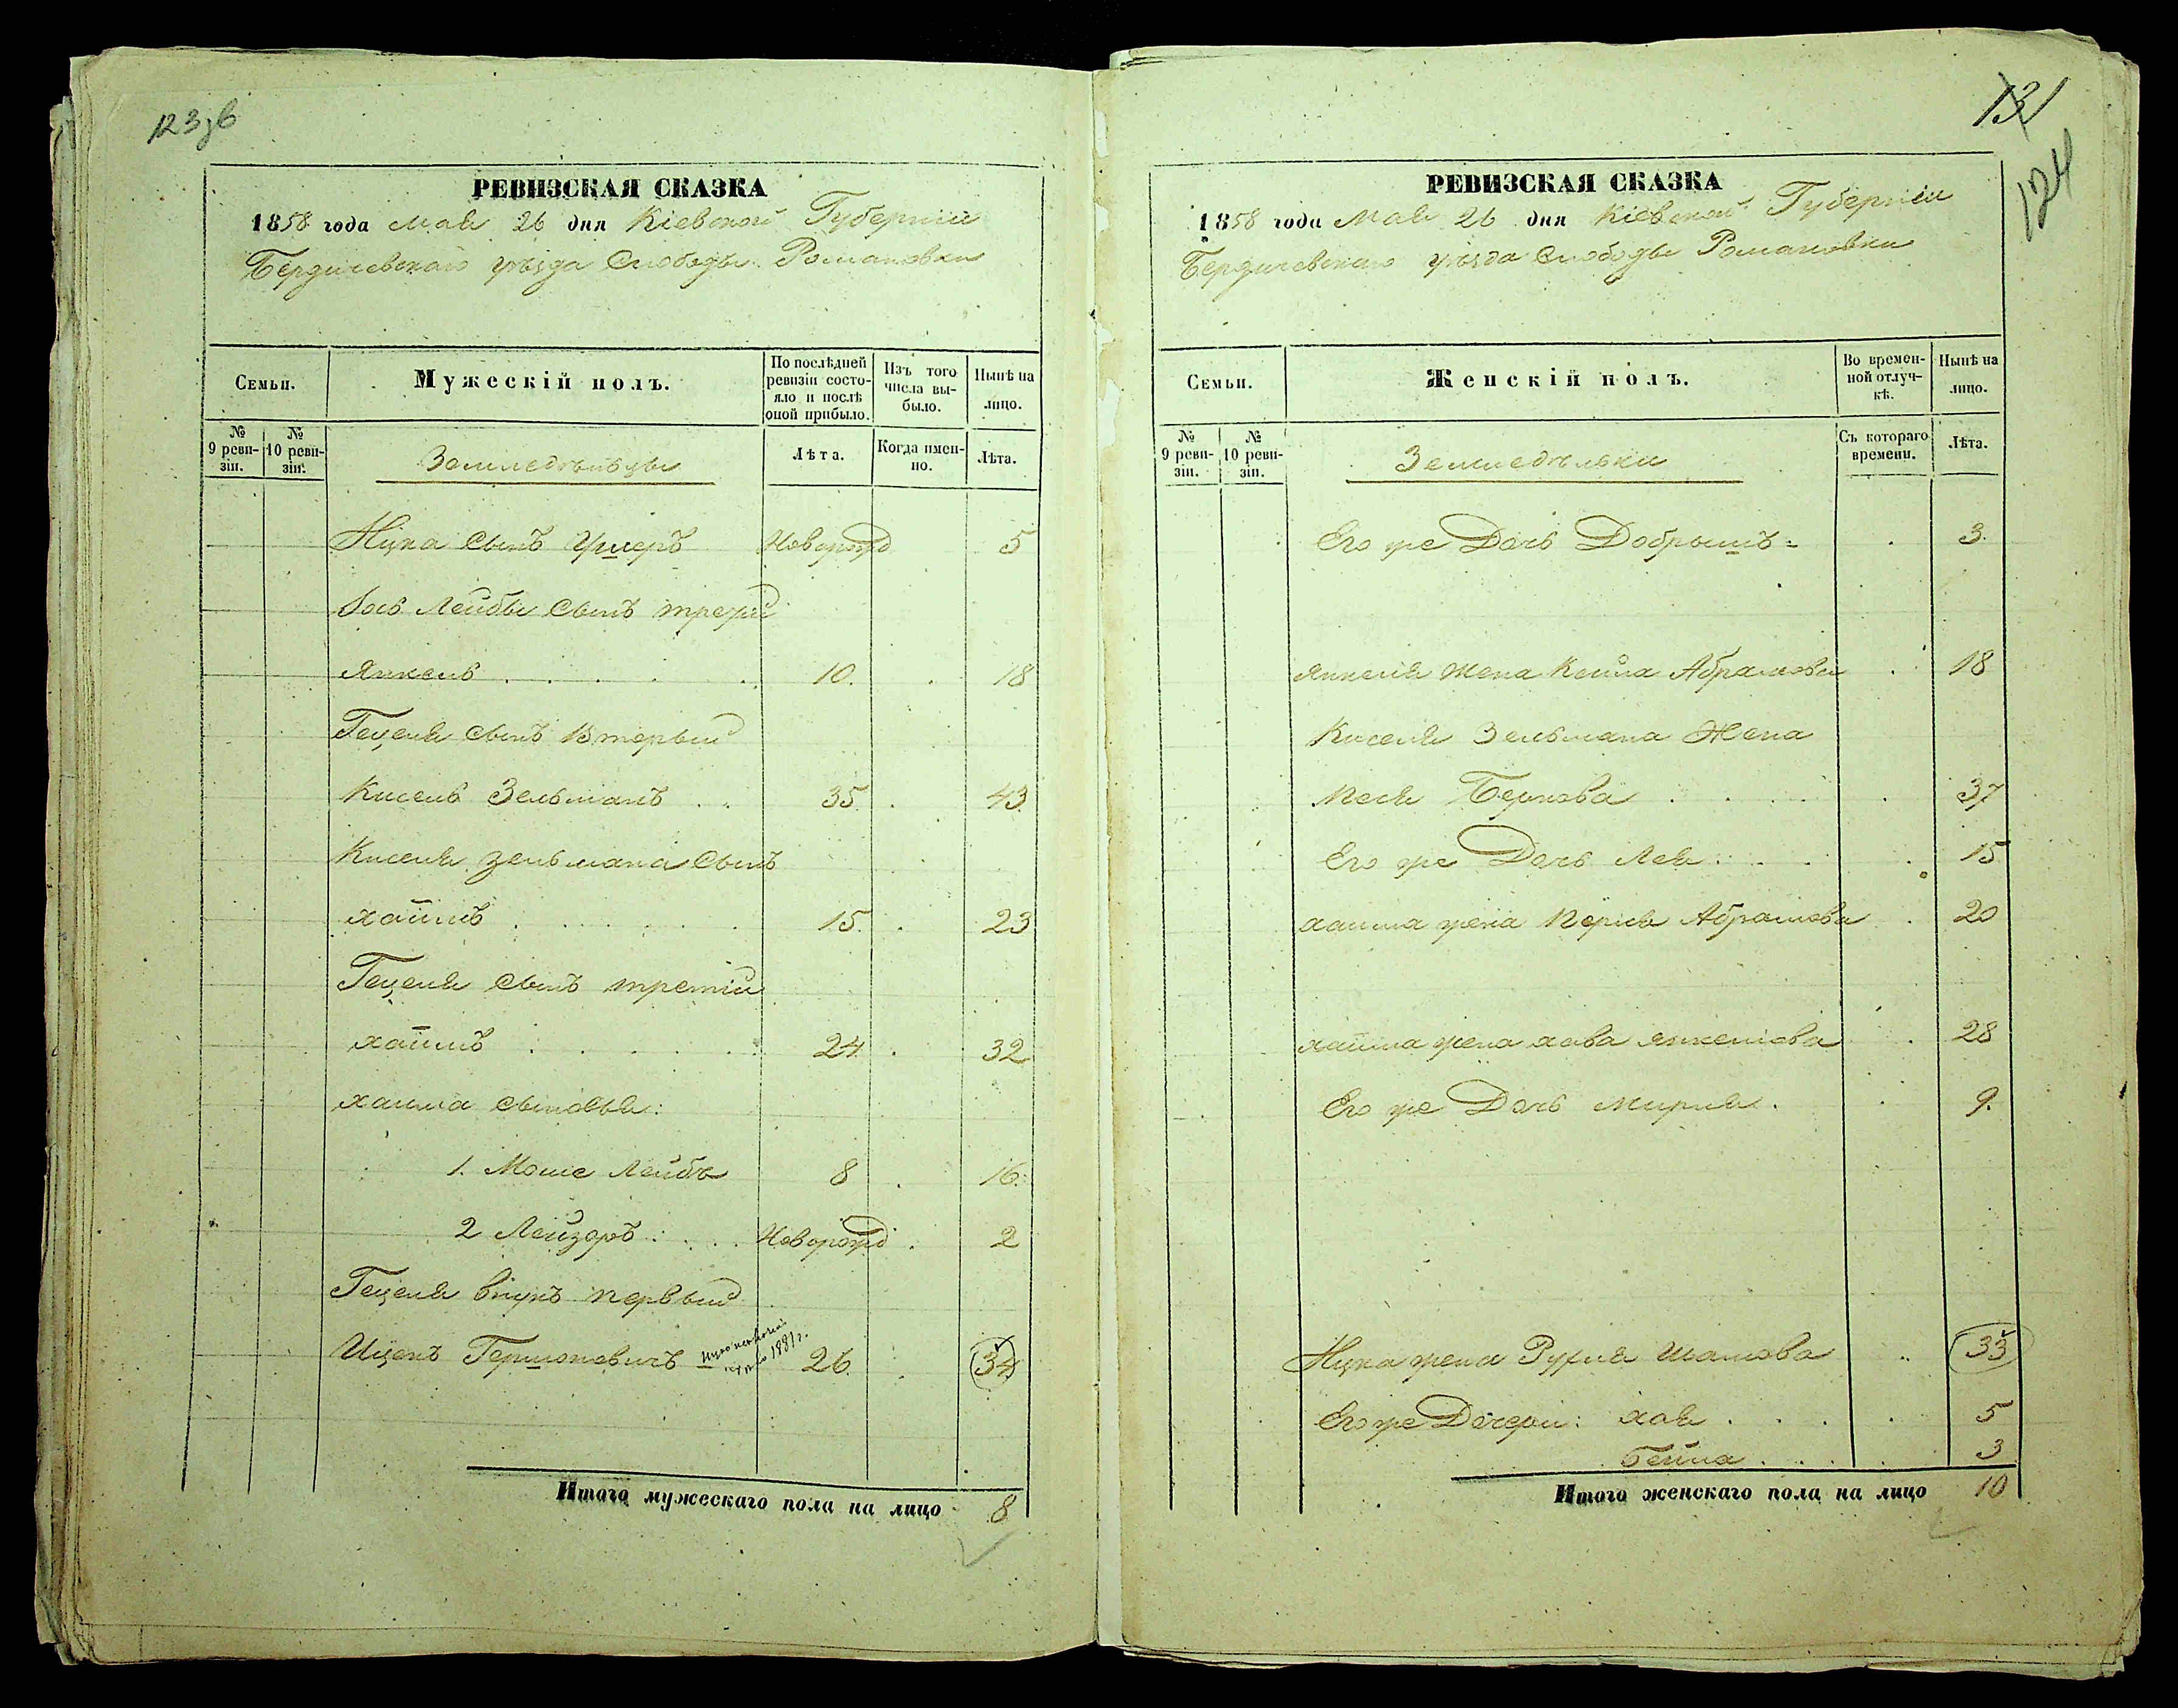 123об
РЕВИЗСКАЯ СКАЗКА
1858 года Мая 26 дня Кіевской Губерніи
Бердичевскаго уѣзда Слободы Романовки
Семьи.
Мужескій полъ.
По послѣдней ревизіи состояло и послѣ оной прибыло.
Изъ того числа выбыло.
Нынѣ на лицо.
№ 9 ревизіи.
№ 10 ревизіи.
Земледѣльцы
Лѣта.
Когда именно.
Лѣта.
Ицка сынъ Ушеръ Новорожд 5
Лейбы сынъ
Янкель 10. 18
Гецеля сынъ Вторый
Кисель Зельманъ 35. 43.
Киселя Зельмана сынъ
Хаимъ 15. 23
Гецеля сынъ третій
Хаимъ 24. 32
Хаима сыновья:
1. Моше Лейбъ 8 16.
2 Лейзоръ: Новорожд 2
Гецеля внукъ первый
Ицекъ Гершоновичъ 26. 34
Итого мужескаго пола на лицо 8
131
124
РЕВИЗСКАЯ СКАЗКА
1858 года Мая 26 дня Кіевской Губерніи
Бердичевскаго уѣзда Слободы Романовки
Семьи.
Женскій полъ.
Во временной отлучкѣ.
Нынѣ на лицо.
№ 9 ревизіи.
№ 10 ревизіи.
Земледѣлки
Съ котораго времени.
Лѣта.
Его же Дочь Добрышъ 3.
Янкеля жена Кейла Абрамова 18
Киселя Зельмана Жена
Песя Беркова 37
Его же Дочь Лея 15
Хаима жена Перля Абрамова 20
Хаима жена Хава Янкелова 28
Его же Дочь Мирля. 9.
Ицка жена Рухля Шамова 33
Его же Дочери: Хая 5
Бейла 3
Итого женскаго пола на лицо 10